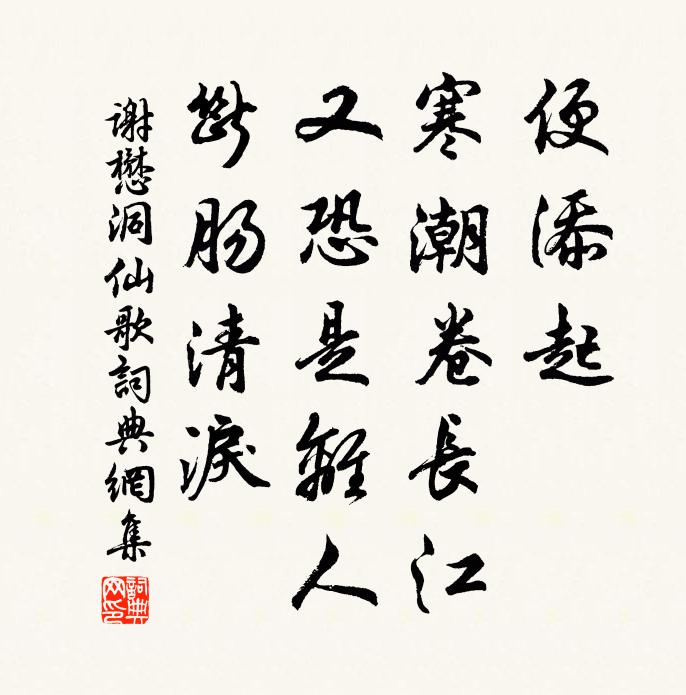 便添起
寒潮卷長江
又恐是離人
斷肠清淚
谢懋洞仙歌詞典網集
詞典網印